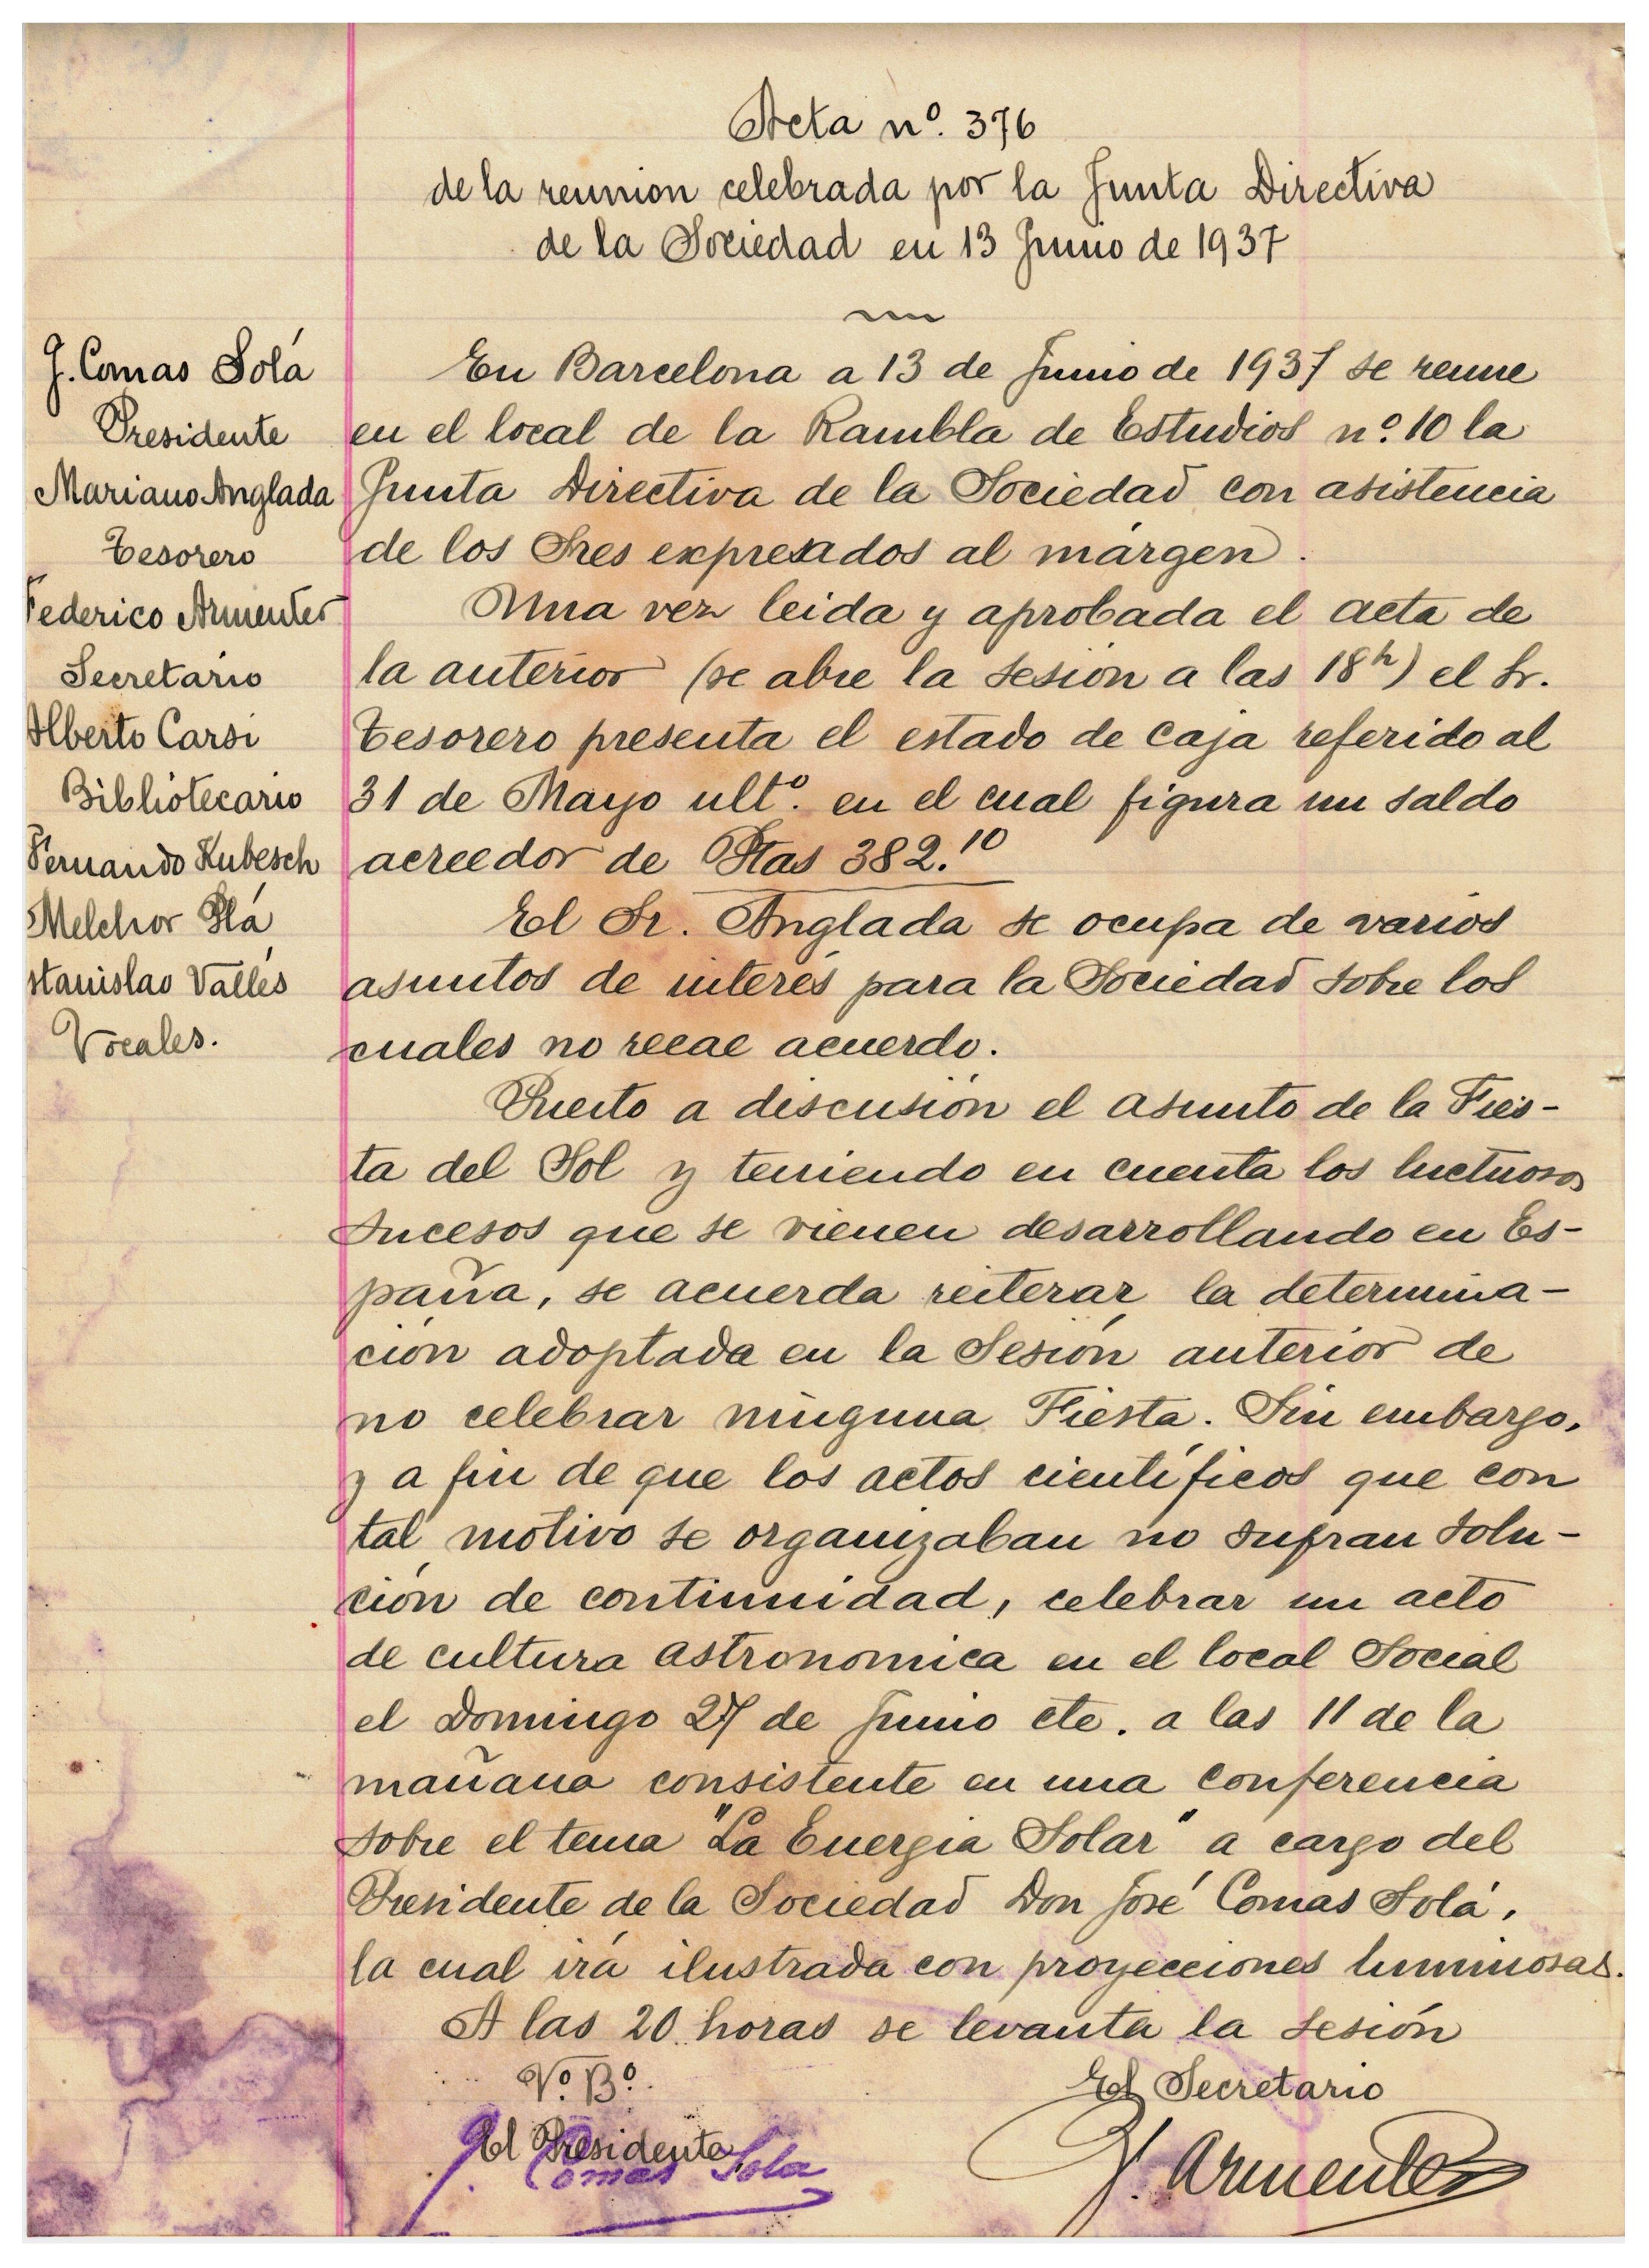 Acta nº. 376
de la reunion celebrada por la Junta Directiva
de la Sociedad en 13 Junio de 1937
J. Comas Solá
Presidente
Mariano Anglada
Tesorero
Federico Armenter
Secretario
Alberto Carsi
Bibliotecario
Fernando Kubesch
Melchor Plá
stanislao Vallés
Vocales.
En Barcelona a 13 de Junio de 1937 se reune
en el local de la Rambla de Estudios nº. 10 la
Junta Directiva de la Sociedad con asistencia
de los Sres expresados al márgen.
Una vez leida y aprobada el acta de
la anterior (se abre la sesión a las 18ʰ) el Sr.
Tesorero presenta el estado de caja referido al
31 de Mayo ultº. en el cual figura un saldo
acreedor de Ptas 382.¹⁰
El Sr. Anglada se ocupa de varios
asuntos de interés para la Sociedad sobre los
cuales no recae acuerdo.
Puesto a discusión el asunto de la Fies-
ta del Sol y teniendo en cuenta los luctuosos
sucesos que se vienen desarrollando en Es-
paña, se acuerda reiterar la determina-
ción adoptada en la Sesión anterior de
no celebrar ninguna Fiesta. Sin embargo,
y a fin de que los actos científicos que con
tal motivo se organizaban no sufran solu-
ción de continuidad, celebrar un acto
de cultura astronomica en el local Social
el Domingo 27 de Junio cte. a las 11 de la
mañana consistente en una conferencia
sobre el tema "La Energia Solar" a cargo del
Presidente de la Sociedad Don José Comas Solá,
la cual irá ilustrada con proyecciones luminosas.
A las 20 horas se levanta la sesión
Vº. Bº.
El Presidente,
J. Comas Sola
El Secretario
F. Armenter